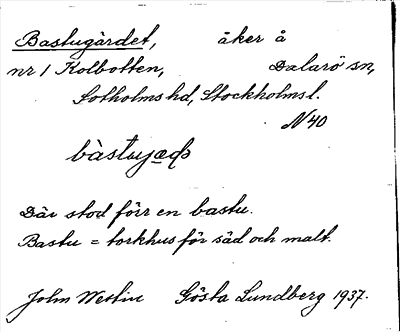 Bastugärdet, åker å
nr 1 Kolbotten, Dalarö sn,
Sotholms hd, Stockholms l.
N40
Där stod förr en bastu.
Bastu = torkhus för säd och malt.
John Westin Gösta Lundberg 1937.